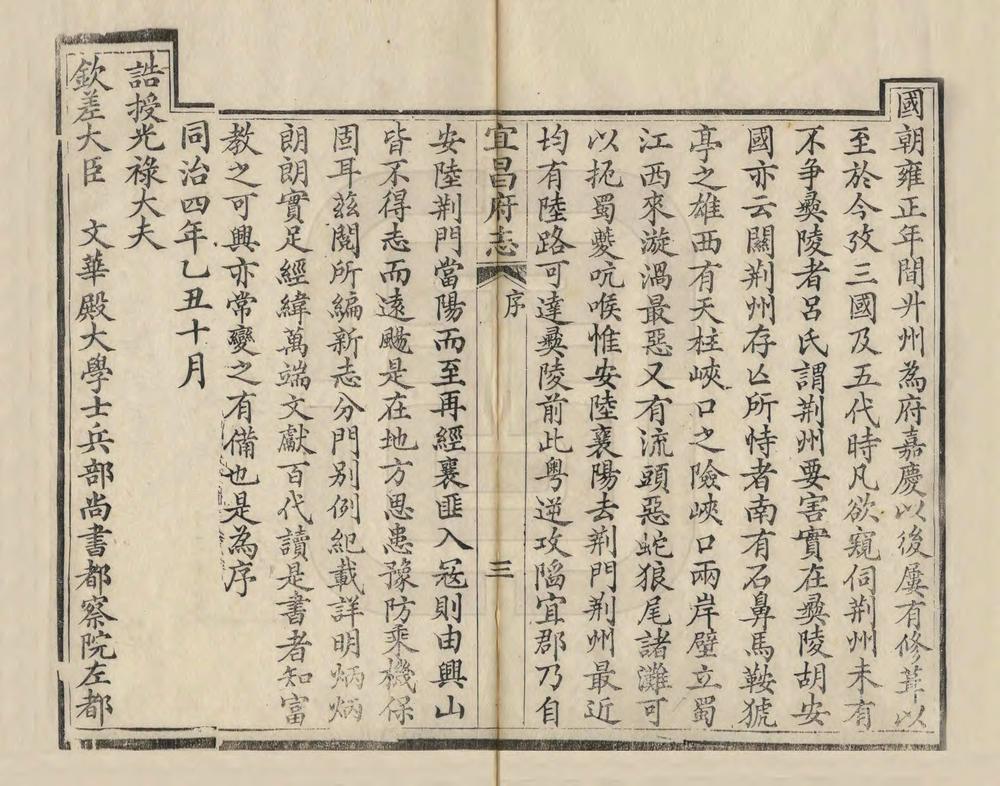 國朝雍正年間升州為府嘉慶以後屢有修葺以
至於今攷三國及五代時凡欲窺伺荆州未有
不爭彝陵者呂氏謂荆州要害實在彝陵胡安
國亦云關荆州存亡所恃者南有石鼻馬鞍猇
亭之雄西有天柱峽口之險峽口兩岸壁立蜀
江西來漩渦最惡又有流頭惡蛇狼尾諸灘可
以扼蜀夔吭喉惟安陸襄陽去荆門荆州最近
均有陸路可達彝陵前此粵逆攻陷宜郡乃自
宜昌府志 序 三
安陸荆門當陽而至再經襄匪入冦則由興山
皆不得志而遠颺是在地方思患豫防乘機保
固耳兹閱所編新志分門别例紀載詳明炳炳
朗朗實足經緯萬端文獻百代讀是書者知富
教之可興亦常變之有備也是為序
同治四年乙丑十月
誥授光祿大夫
欽差大臣 文華殿大學士兵部尚書都察院左都